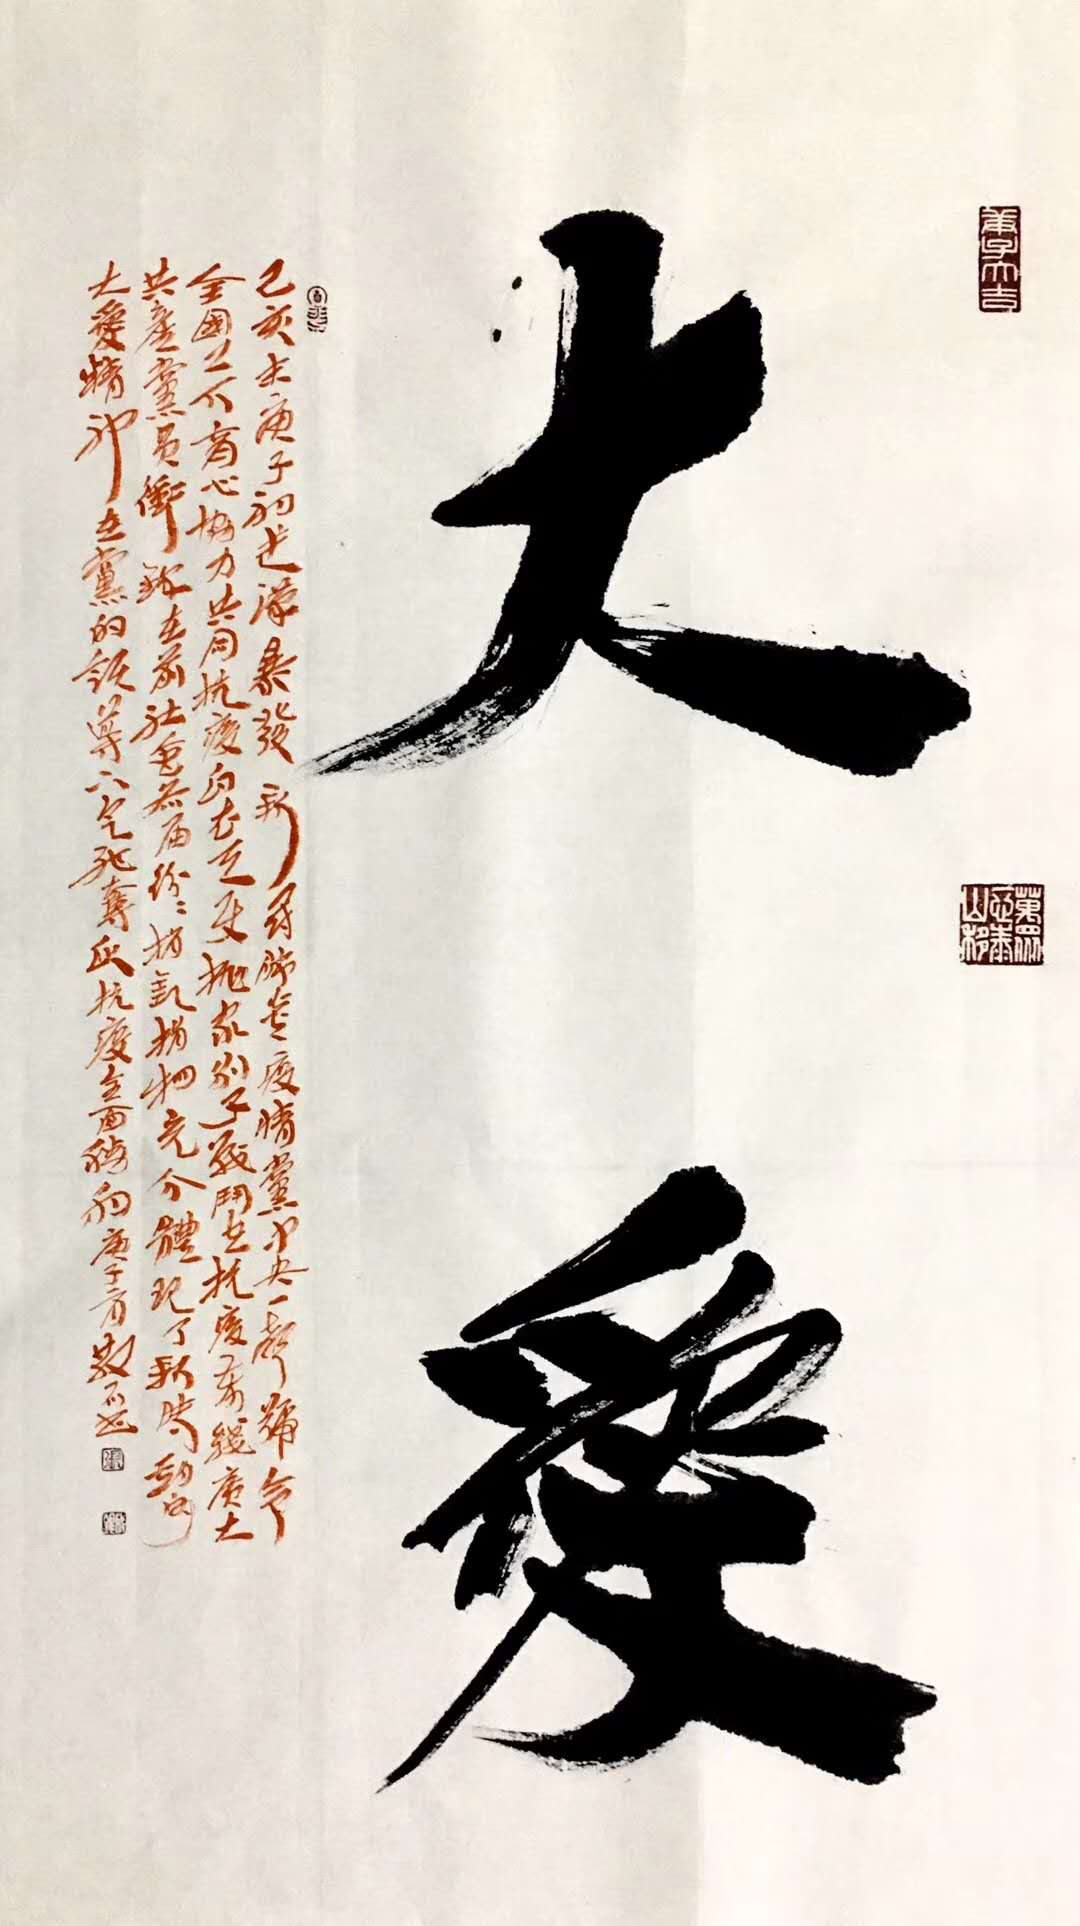 大愛
己亥末庚子初武漢暴發新冠肺炎疫情黨中央一聲號令
全國上下齊心協力共同抗疫白衣天使拋家別子戰鬥在抗疫前綫廣大
共產黨員衝鋒在前社會各届紛紛捐款捐物充分體現了新時代
大愛精神在黨的領導下定能奪取抗疫全面勝利庚子